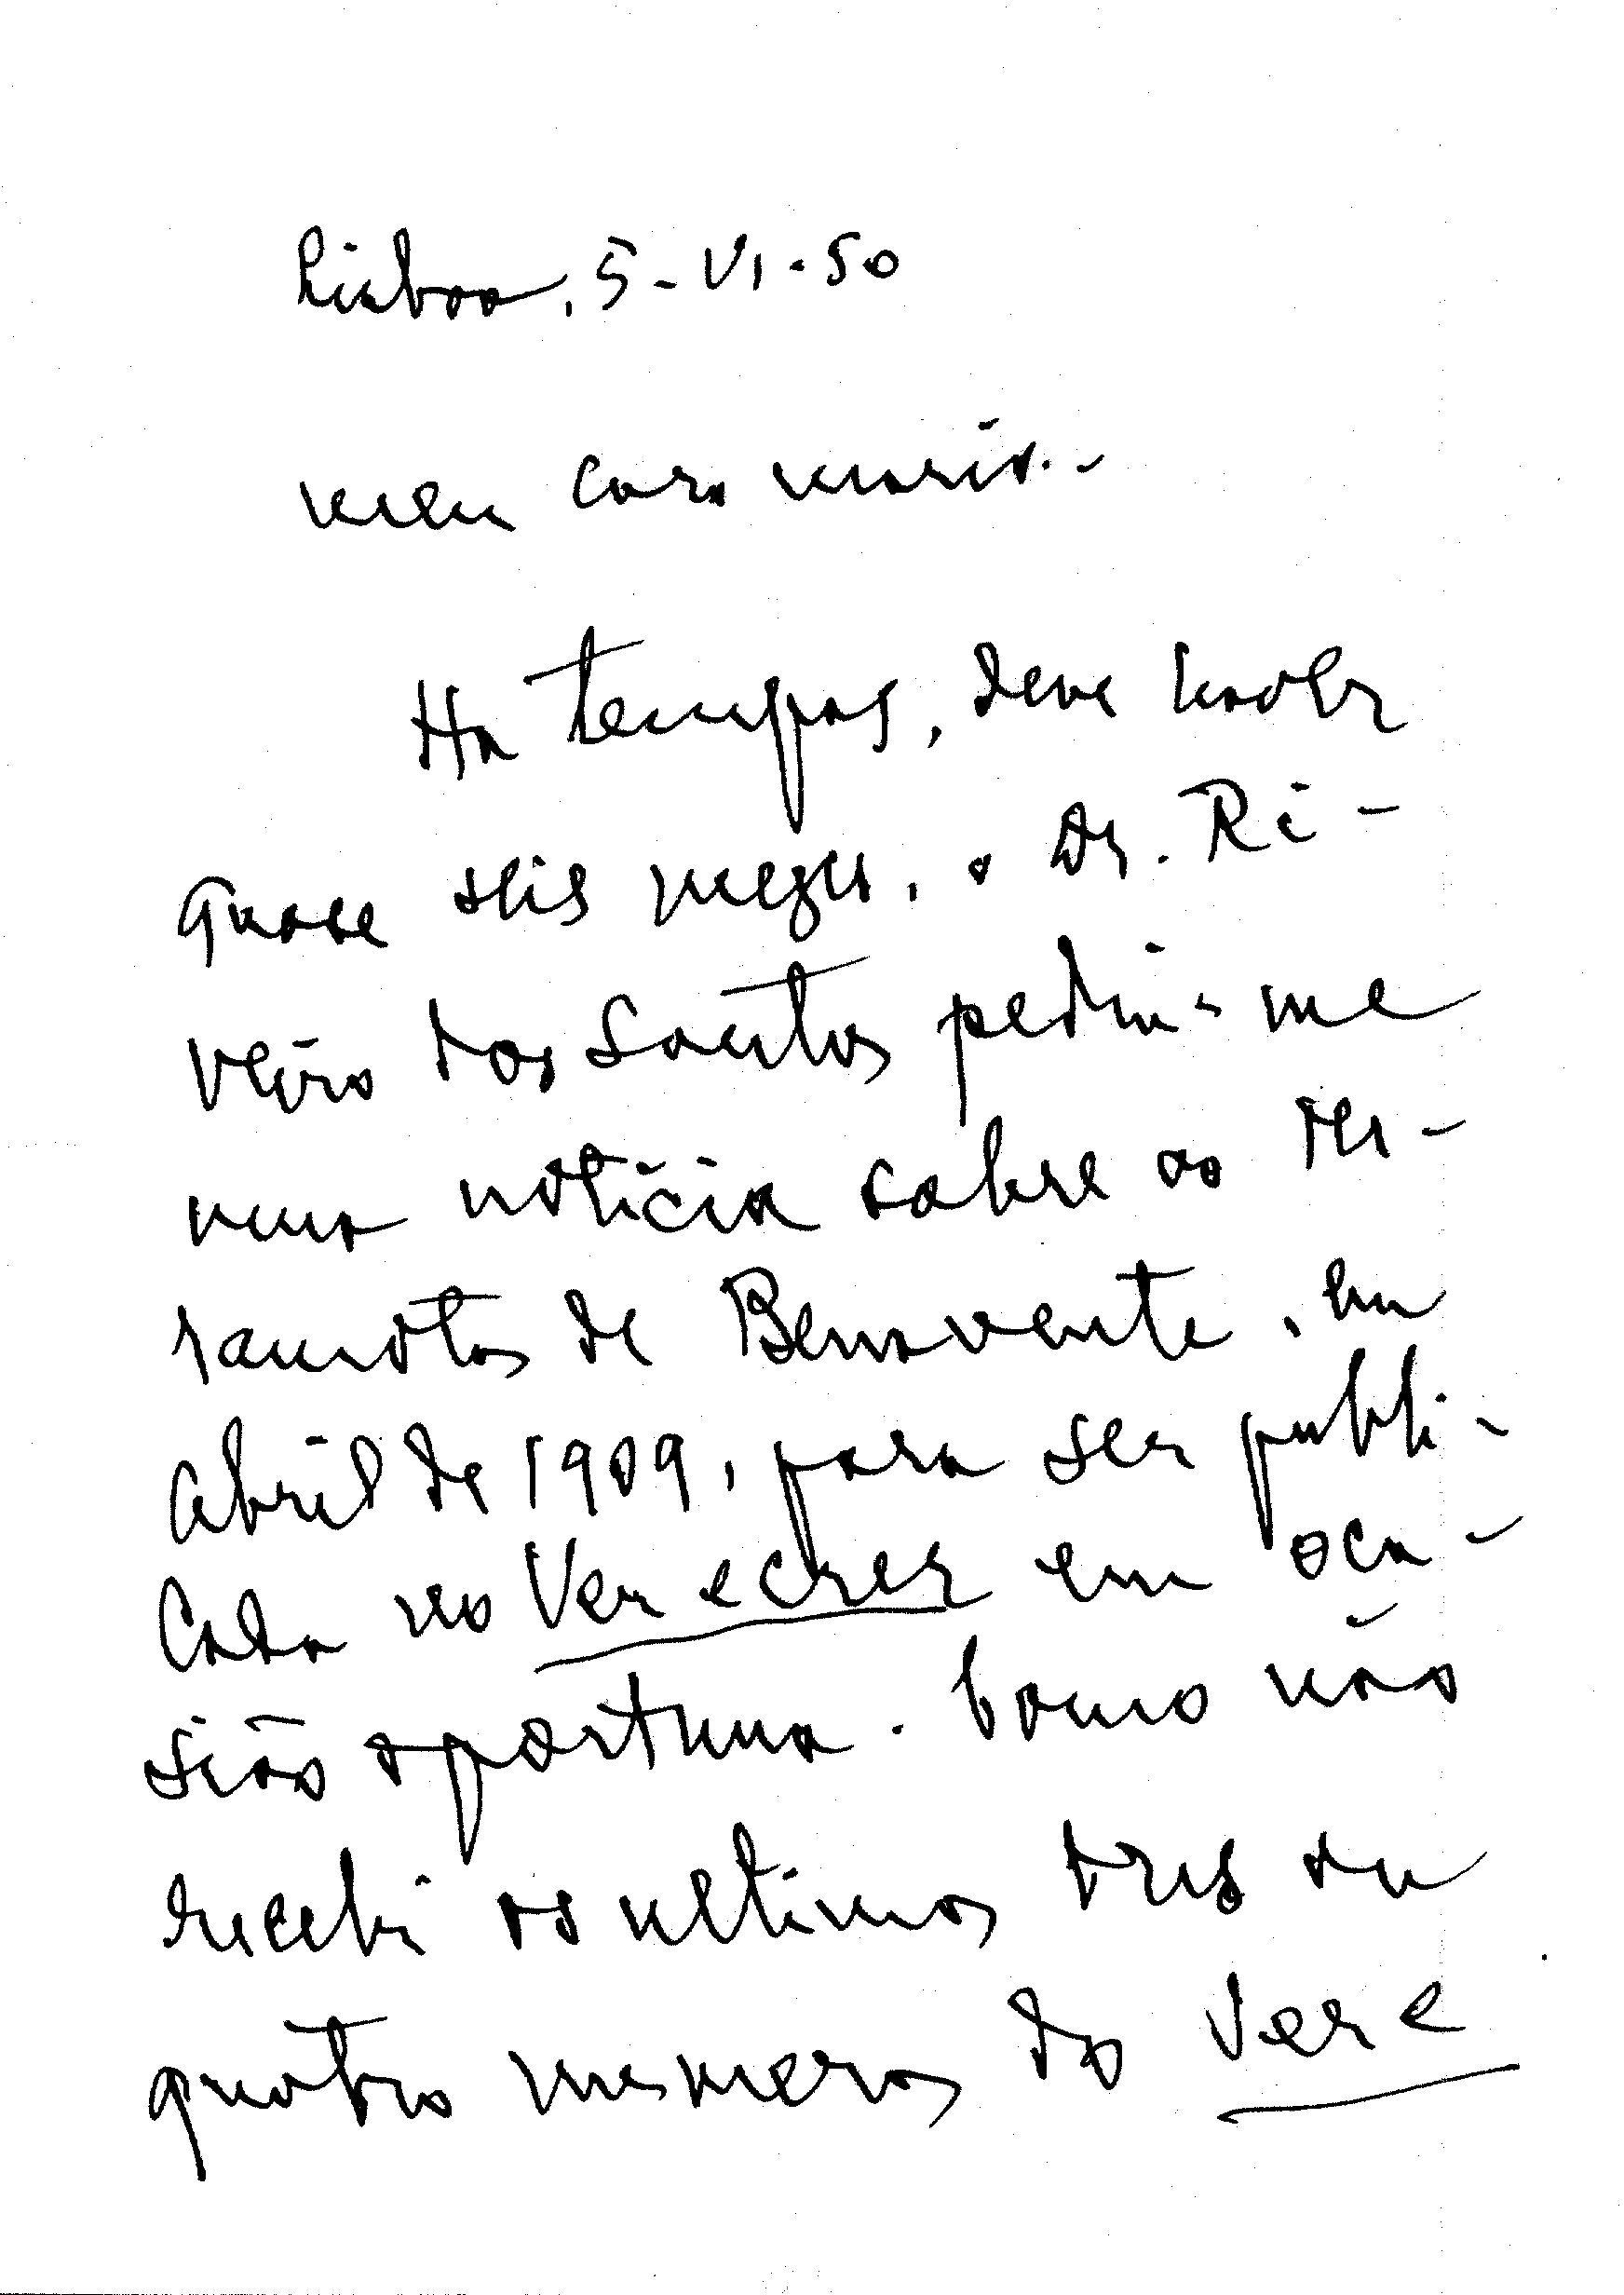 Lisboa, 5-VI-50
Meu caro Mario.-
Ha tempos, deve haver
quase seis mezes, o Dr. Ri-
veiro dos Santos pediu-me
uma notícia sobre os ter-
ramotos de Benavente, em
abril de 1909, para ser publi-
cada no Ver e crer em oca-
sião oportuna. Como não
recebi os ultimos tres ou
quatro numeros do Ver e